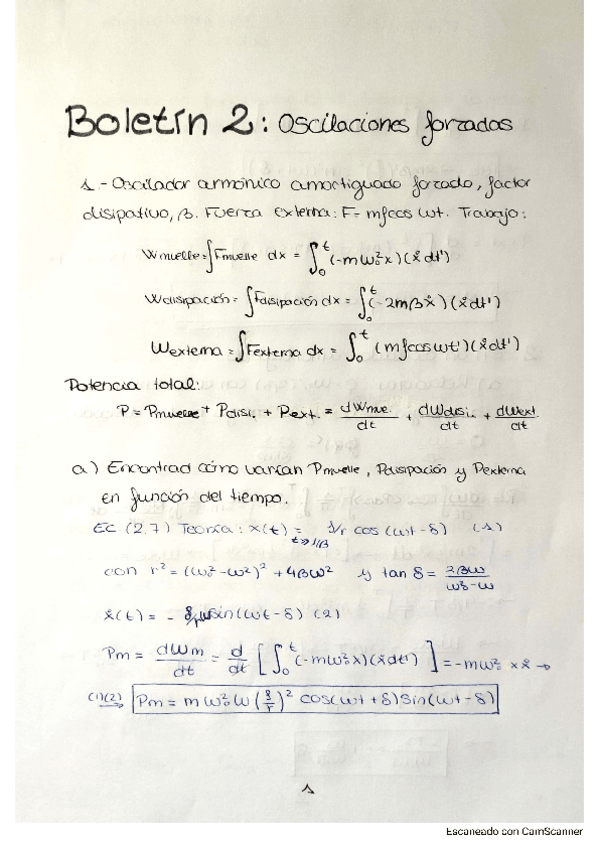 Boletín 2: Oscilaciones forzadas
1.- Oscilador armónico amortiguado forzado, factor
disipativo, β. Fuerza externa: F = mfcos ωt. Trabajo:
Wmuelle = ∫Fmuelle dx = ∫₀ᵗ (-mω₀²x)(ẋdt')
Wdisipación = ∫Fdisipación dx = ∫₀ᵗ (-2mβẋ)(ẋdt')
Wexterna = ∫Fexterna dx = ∫₀ᵗ (mfcos ωt')(ẋdt')
Potencia total:
P = Pmuelle + Pdisi. + Pext. = dWmue./dt + dWdisi./dt + dWext/dt
a) Encontrad cómo varían Pmuelle, Pdisipación y Pexterna
en función del tiempo.
EC (2.7) Teoría: x(t) = t≫1/β f/r cos (ωt - δ) (1)
con r² = (ω₀² - ω²)² + 4βω² y tan δ = 2βω/ω₀² - ω
ẋ(t) = - f/r ω sin(ωt - δ) (2)
Pm = dWm/dt = d/dt [∫₀ᵗ (-mω₀²x)(ẋdt')] = -mω₀² xẋ →
(1)(2) ⟹ Pm = mω₀²ω (f/r)² cos(ωt + δ)sin(ωt - δ)
1
Escaneado con CamScanner